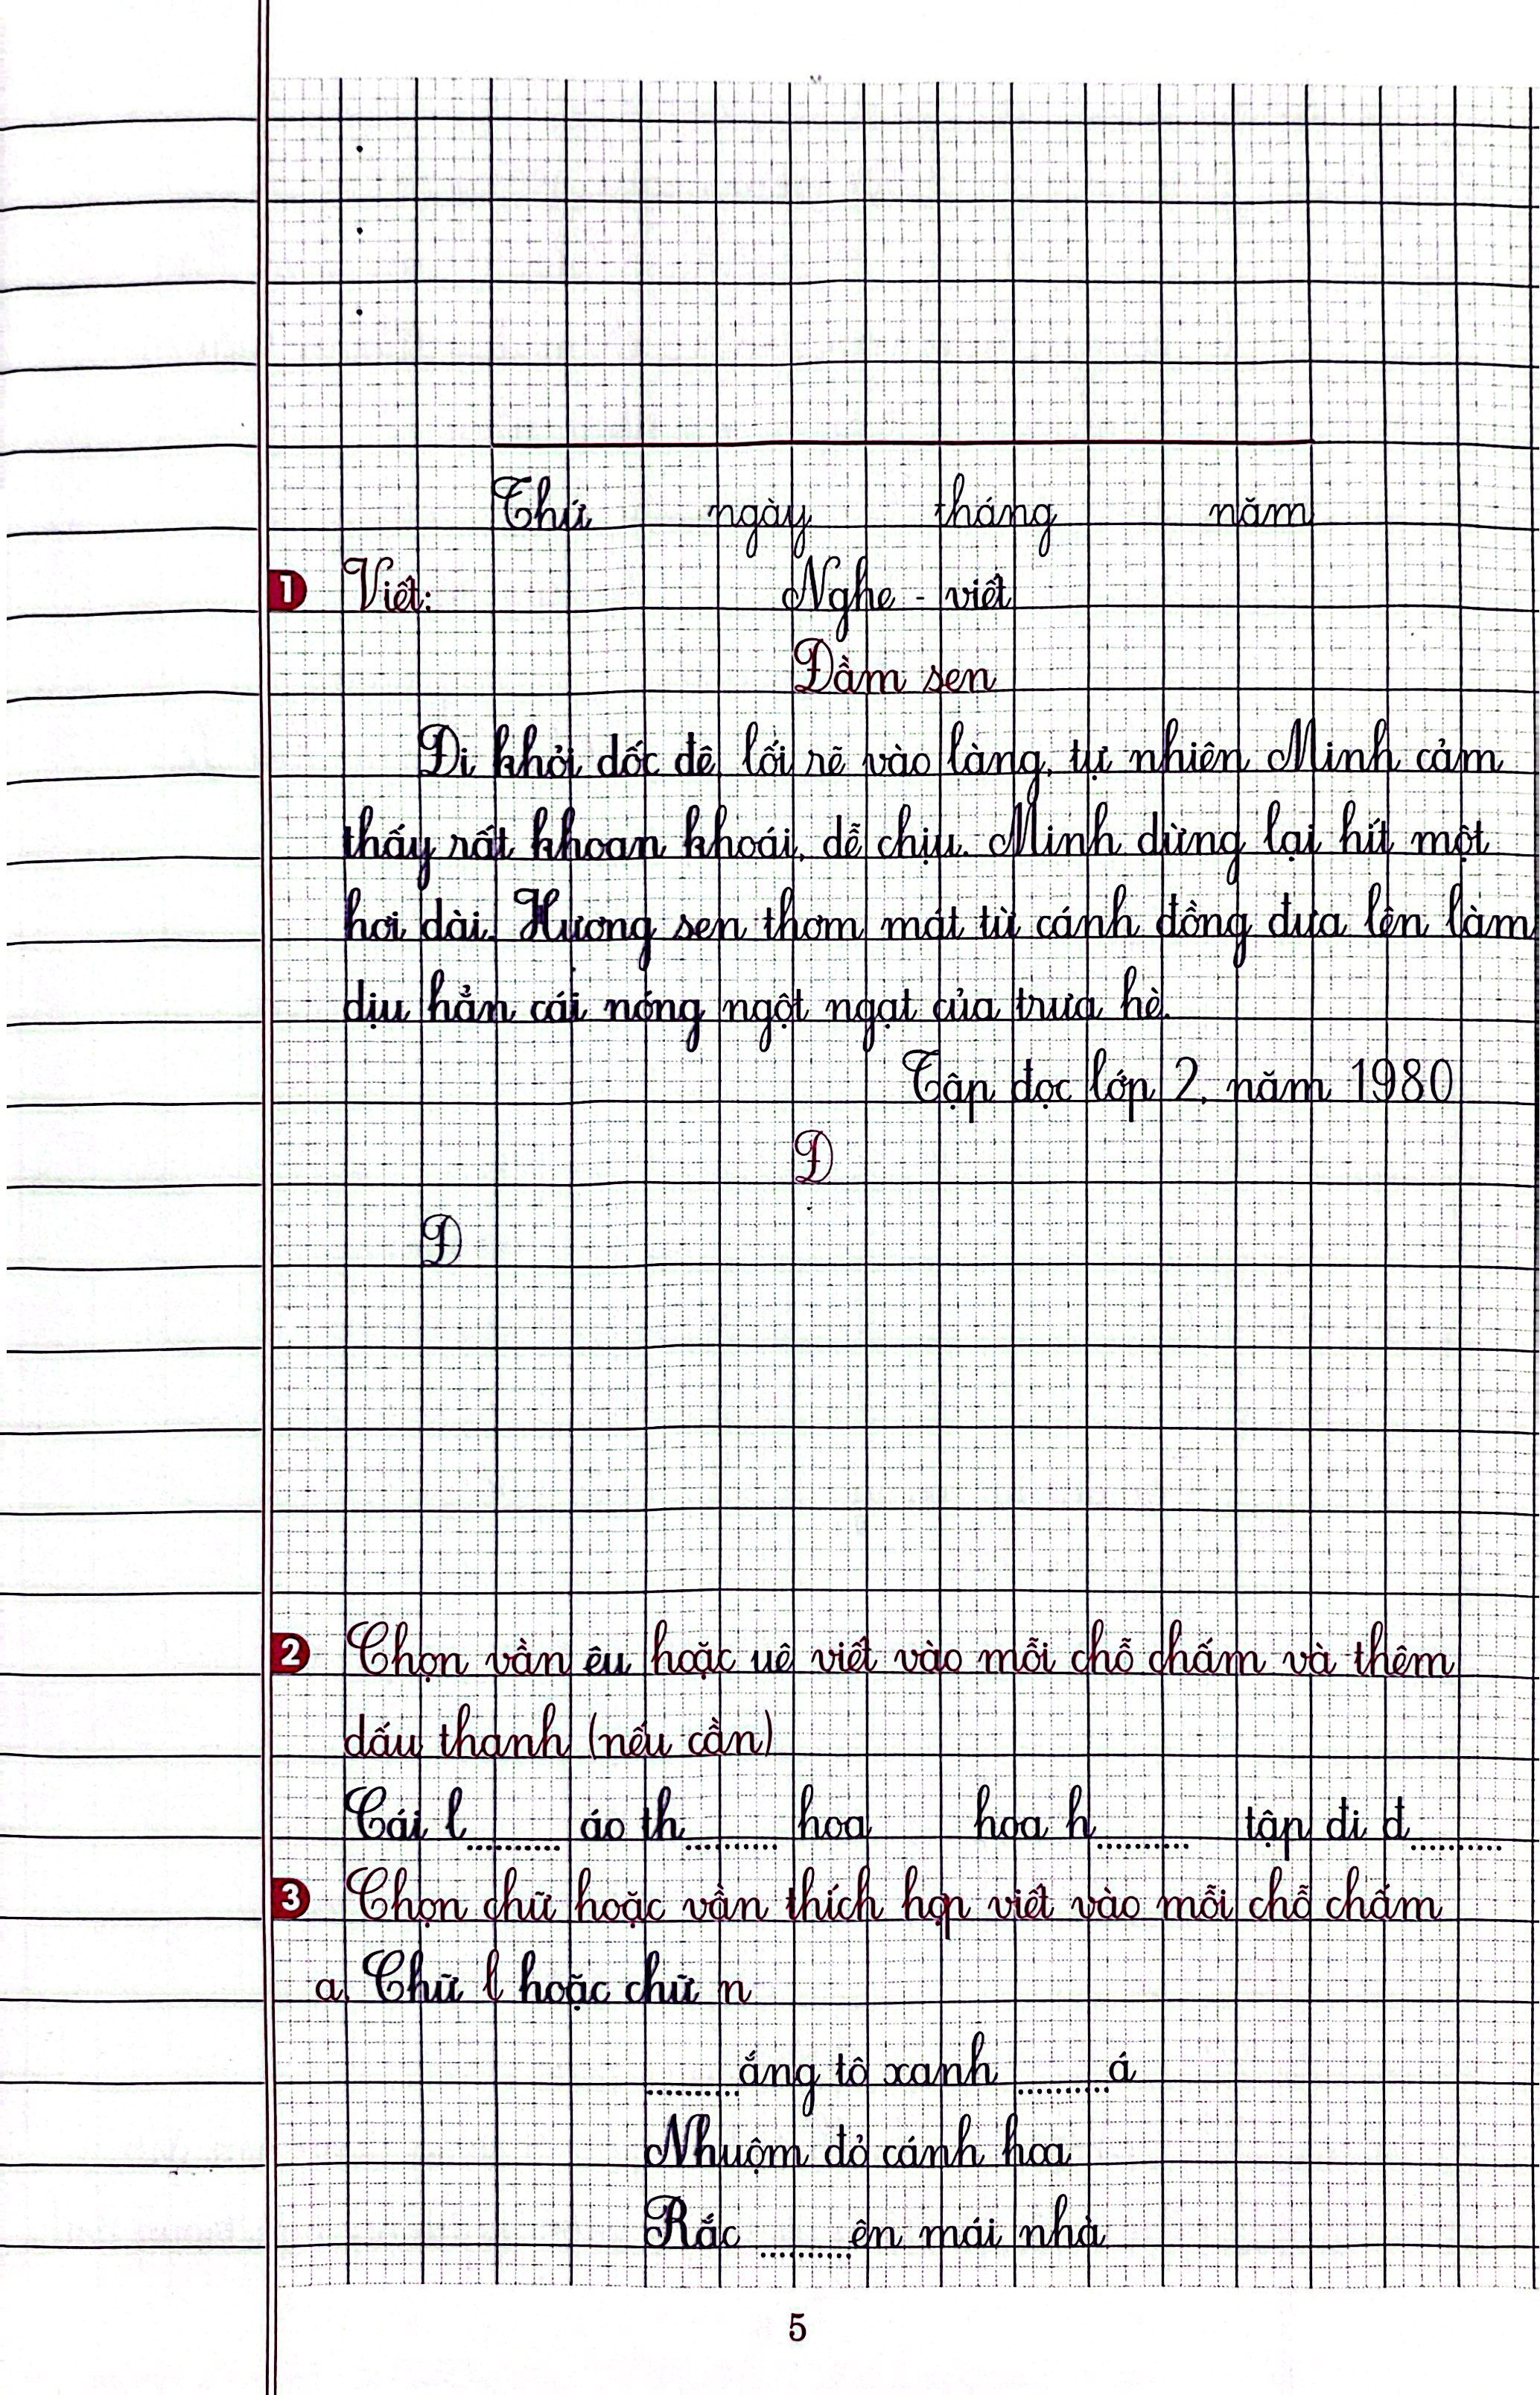 Thứ ngày tháng năm
1 Viết: Nghe - viết
Đầm sen
Đi khỏi dốc đê, lối rẽ vào làng, tự nhiên Minh cảm
thấy rất khoan khoái, dễ chịu. Minh dừng lại hít một
hơi dài. Hương sen thơm mát từ cánh đồng đưa lên làm
dịu hẳn cái nóng ngột ngạt của trưa hè.
Tập đọc lớp 2, năm 1980
Đ
Đ
2 Chọn vần êu hoặc uê viết vào mỗi chỗ chấm và thêm
dấu thanh (nếu cần)
Cái l......... áo th......... hoa hoa h......... tập đi đ.........
3 Chọn chữ hoặc vần thích hợp viết vào mỗi chỗ chấm
a. Chữ l hoặc chữ n
.........ắng tô xanh .........á
Nhuộm đỏ cánh hoa
Rắc .........ên mái nhà
5